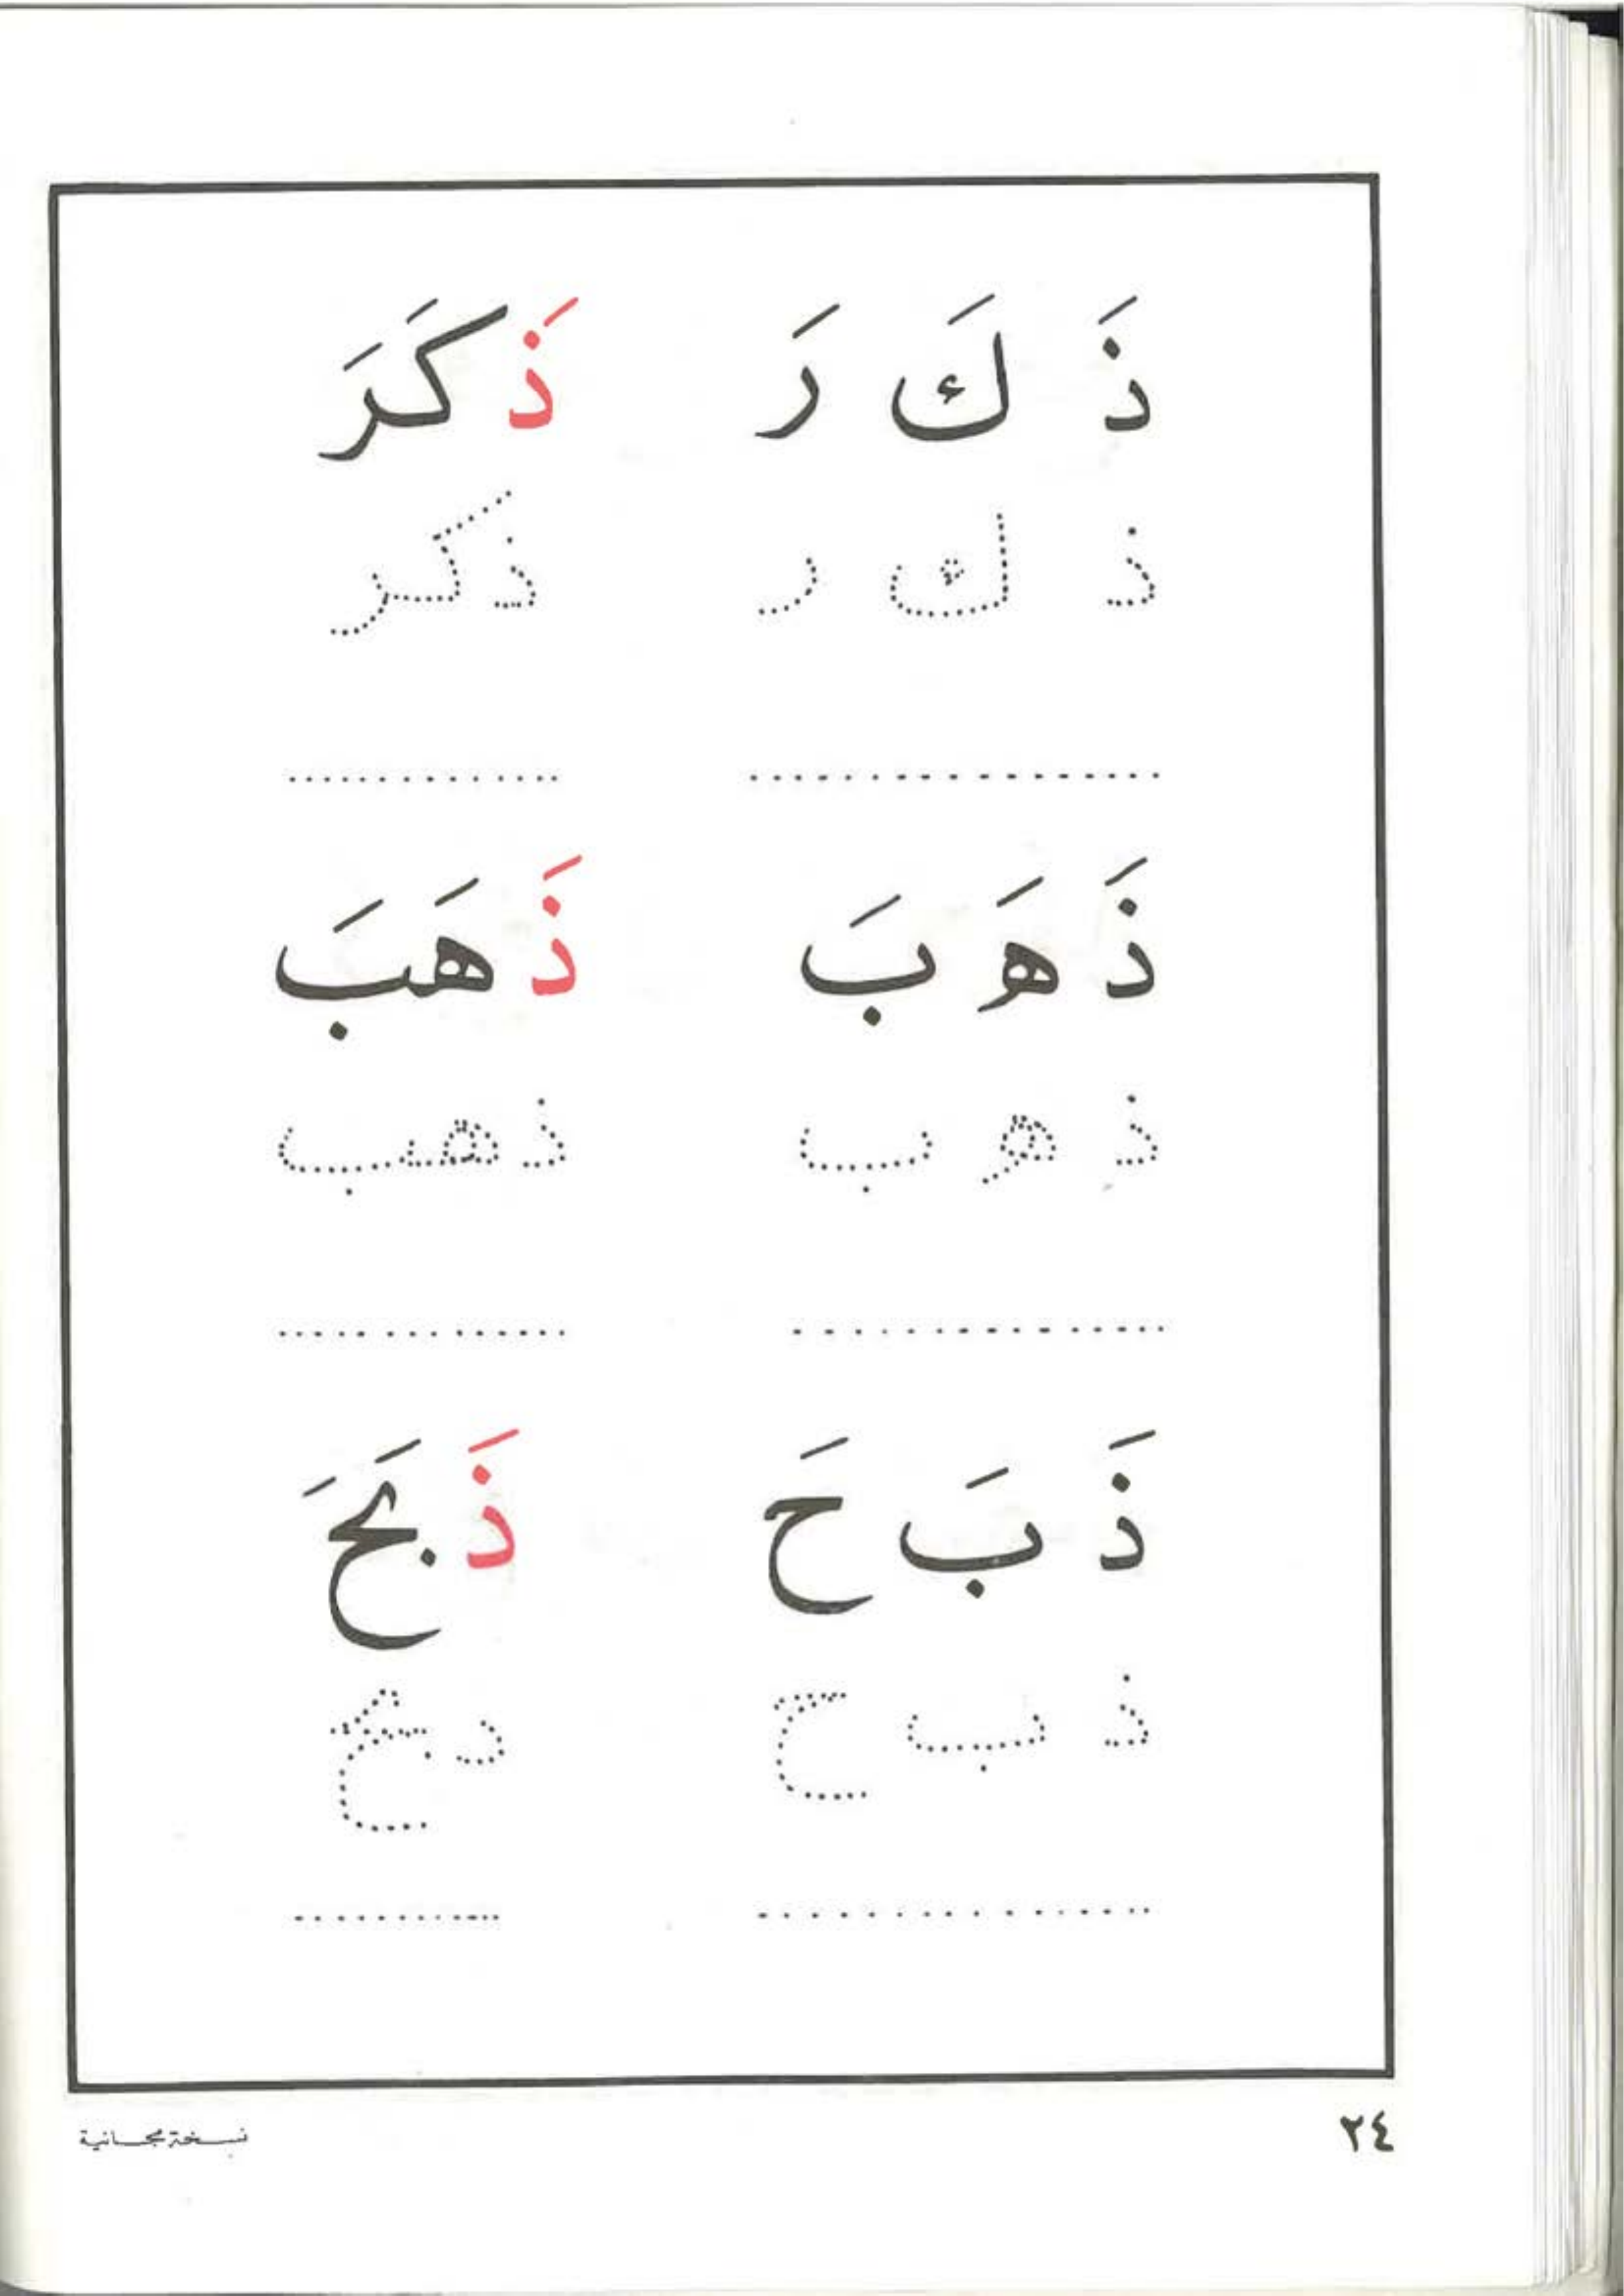 ذَ كَ رَ ذَكَرَ
ذ ك ر ذكر
ذَ هَ بَ ذَهَبَ
ذ ه ب ذهب
ذَ بَ حَ ذَبَحَ
ذ ب ح دبح
٢٤
نسخة مجانية